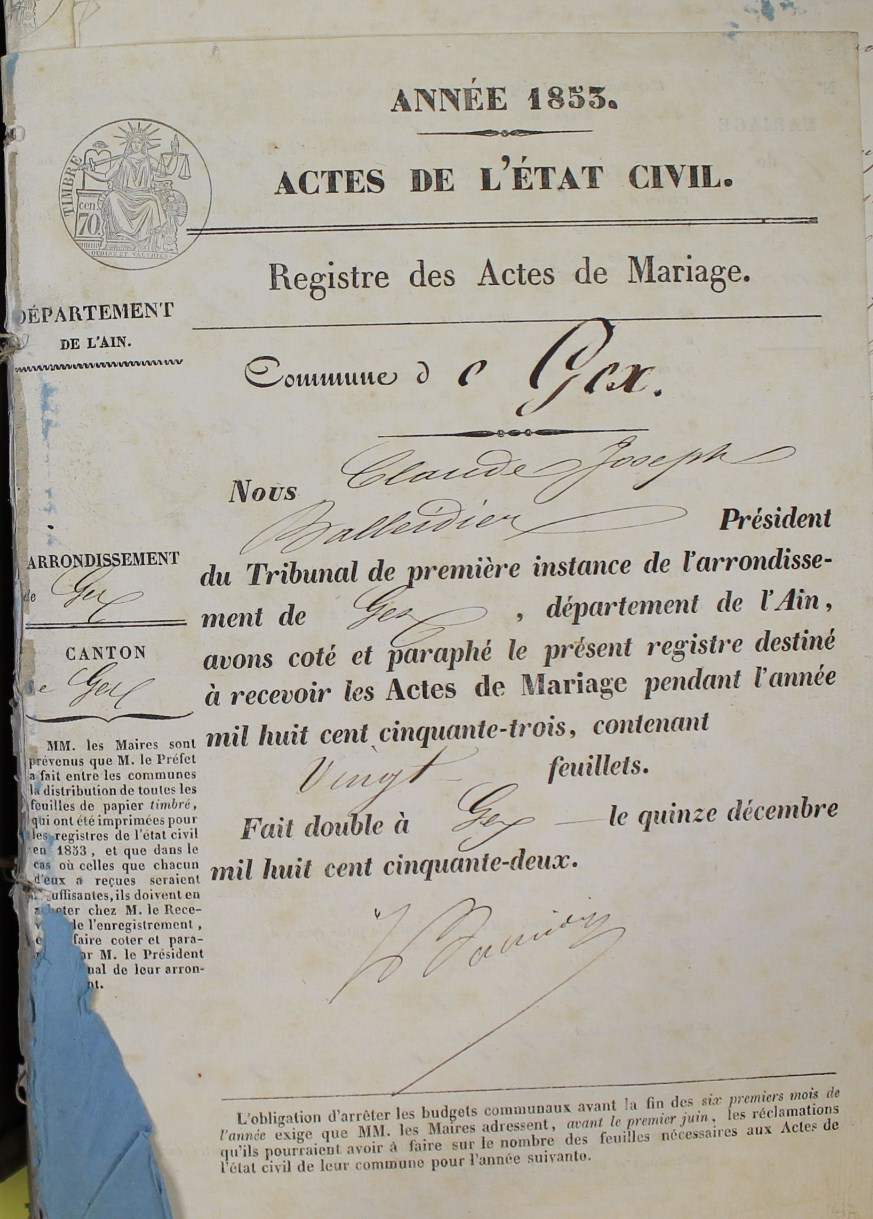 ANNÉE 1853.
ACTES DE L'ÉTAT CIVIL.
TIMBRE
cen
70
Registre des Actes de Mariage.
DÉPARTEMENT
DE L'AIN.
Commune de Gex.
Nous Claude Joseph
Balleidier Président
du Tribunal de première instance de l'arrondisse-
ment de Gex, département de l'Ain,
avons coté et paraphé le présent registre destiné
à recevoir les Actes de Mariage pendant l'année
mil huit cent cinquante-trois, contenant
Vingt feuillets.
Fait double à Gex le quinze décembre
mil huit cent cinquante-deux.
ARRONDISSEMENT
de Gex
CANTON
de Gex
MM. les Maires sont
prévenus que M. le Préfet
a fait entre les communes
la distribution de toutes les
feuilles de papier timbré,
qui ont été imprimées pour
les registres de l'état civil
en 1853, et que dans le
cas où celles que chacun
d'eux a reçues seraient
uffisantes, ils doivent en
acheter chez M. le Rece-
de l'enregistrement,
faire coter et para-
M. le Président
nal de leur arron-
nt.
L'obligation d'arrêter les budgets communaux avant la fin des six premiers mois de
l'année exige que MM. les Maires adressent, avant le premier juin, les réclamations
qu'ils pourraient avoir à faire sur le nombre des feuilles nécessaires aux Actes de
l'état civil de leur commune pour l'année suivante.